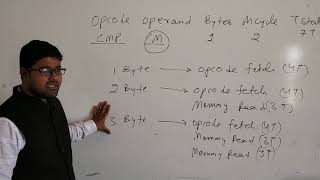 Opcode Operand Bytes Mcycle T stat
CMP M 1 2 7T
1 Byte → opcode fetch (4T)
2 Byte → opcode fetch (4T)
Memory Read (3T)
3 Byte → opcode fetch (4T)
Memory Read (3T)
Memory Read (3T)